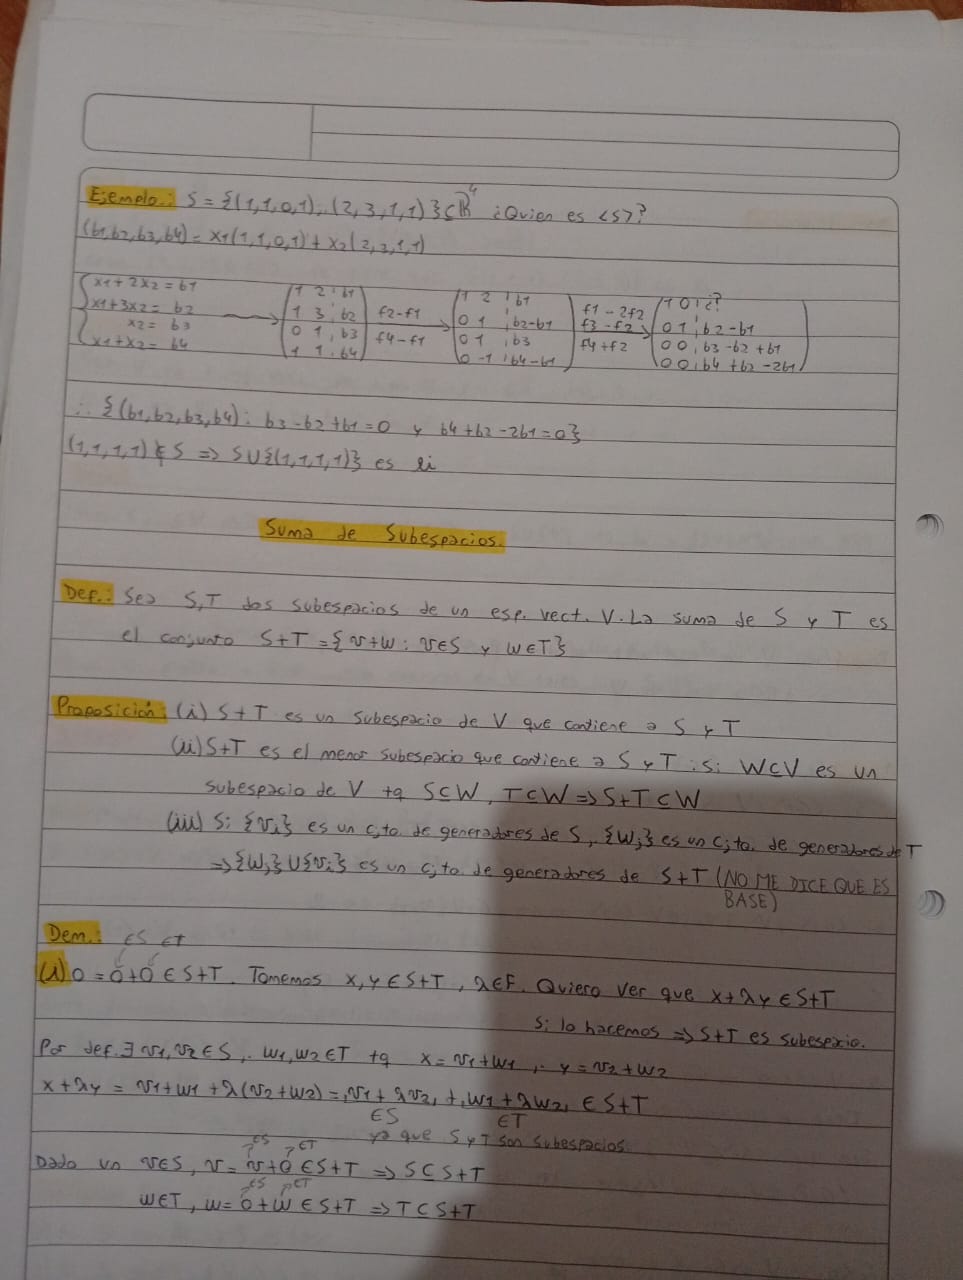 Ejemplo: S = {(1,1,0,1), (2,3,1,1)} ⊆ ℝ⁴ ¿Quien es <S>?
(b1,b2,b3,b4) = x1(1,1,0,1) + x2(2,3,1,1)
{ x1+2x2 = b1 ( 1 2 ¦ b1 ) ( 1 2 ¦ b1 ) f1 - 2f2 ( 1 0 ¦ ¿?
x1+3x2 = b2 1 3 ¦ b2 f2-f1 0 1 ¦ b2-b1 f3-f2 0 1 ¦ b2-b1
x2 = b3 → 0 1 ¦ b3 → 0 1 ¦ b3 → 0 0 ¦ b3-b2+b1
x1+x2 = b4 1 1 ¦ b4 f4-f1 0 -1 ¦ b4-b1 f4+f2 0 0 ¦ b4+b2-2b1 )
∴ {(b1,b2,b3,b4): b3-b2+b1=0 y b4+b2-2b1=0}
(1,1,1,1) ∉ S => S∪{(1,1,1,1)} es li
Suma de Subespacios.
Def.: Sea S,T dos subespacios de un esp. vect. V. La suma de S y T es
el conjunto S+T = {v+w : v∈S y w∈T}
Proposición: (i) S+T es un subespacio de V que contiene a S y T
(ii) S+T es el menor subespacio que contiene a S y T : Si W⊂V es un
subespacio de V tq S⊆W, T⊂W => S+T⊂W
(iii) Si {vi} es un cjto. de generadores de S, {wj} es un cjto. de generadores de T
=> {wj}∪{vi} es un cjto. de generadores de S+T (NO ME DICE QUE ES
BASE)
Dem.: ∈S ∈T
(i) 0 = 0+0 ∈ S+T. Tomemos x,y ∈ S+T, λ∈F. Quiero ver que x+λy ∈ S+T
Si lo hacemos => S+T es subespacio.
Por def. ∃ v1,v2 ∈ S, w1,w2 ∈ T tq x = v1+w1, y = v2+w2
x+λy = v1+w1 + λ(v2+w2) = v1+λv2 + w1+λw2 ∈ S+T
∈S ∈T
ya que S y T son subespacios
∈S ∈T
Dado un v∈S, v = v+0 ∈ S+T => S⊆S+T
∈S ∈T
w∈T, w = 0+w ∈ S+T => T⊂S+T